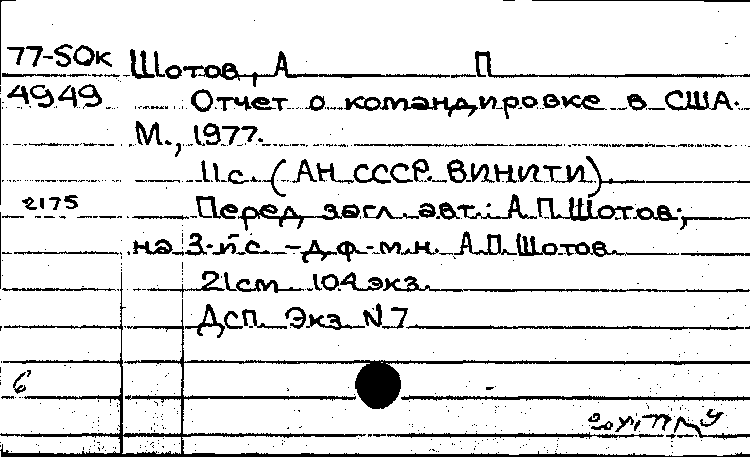 77-50к Шотов, А П
4949 Отчет о командировке в США.
М., 1977.
11с. (АН СССР. ВИНИТИ).
2175 Перед загл. авт.: А.П.Шотов;
на 3-й с. - д.ф.-м.н. А.П.Шотов.
21см. 104 экз.
Дсп. Экз. N 7
6